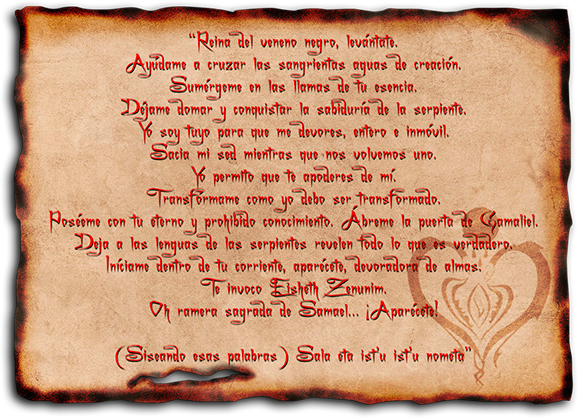 “Reina del veneno negro, levántate.
Ayúdame a cruzar las sangrientas aguas de creación.
Sumérgeme en las llamas de tu esencia.
Déjame domar y conquistar la sabiduría de la serpiente.
Yo soy tuyo para que me devores, entero e inmóvil.
Sacia mi sed mientras que nos volvemos uno.
Yo permito que te apoderes de mí.
Transfórmame como yo debo ser transformado.
Poséeme con tu eterno y prohibido conocimiento. Ábreme la puerta de Gamaliel.
Deja a las lenguas de las serpientes revelen todo lo que es verdadero.
Iníciame dentro de tu corriente, aparécete, devoradora de almas.
Te invoco Eisheth Zenunim.
Oh ramera sagrada de Samael... ¡Aparécete!
(Siseando esas palabras) Sala eta ist'u ist'u nometa”